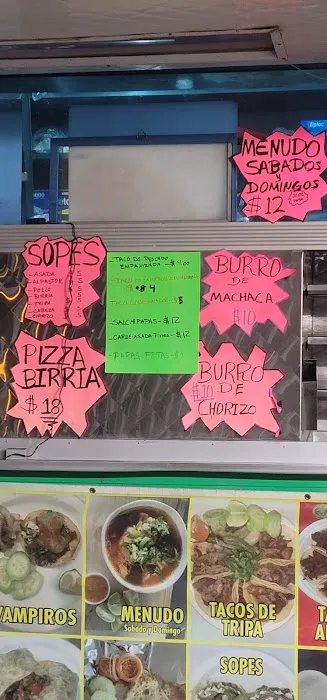 MENUDO
SABADOS
Y
DOMINGOS
$12
SOPES
-ASADA 5
ALPASTOR 5
-POLLO 5
-BIRRIA 5
-TRIPA 5
-CABEZA 5
CHORIZO
-TACO DE PESCADO
EMPANIZADA-$
$ 4
$5
SALCHIPAPAS-$12
CARNE ASADA Fries-$12
-PAPAS FRITAS-$
BURRO
DE
MACHACA
$10
PIZZA
BIRRIA
$18
BURRO
$10 DE
CHORIZO
VAMPIROS
MENUDO
Sabado y Domingo
TACOS DE
TRIPA
SOPES